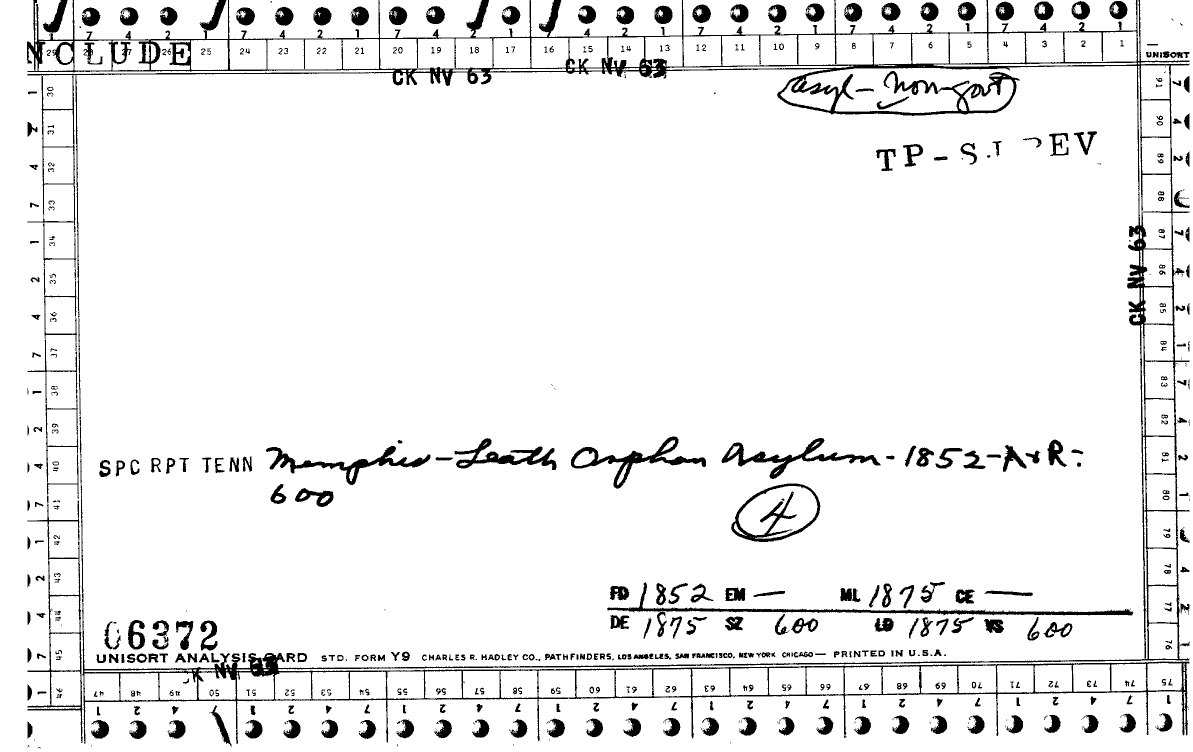 7 4 2 1 7 4 2 1 7 4 2 1 7 4 2 1 7 4 2 1 7 4 2 1 7 4 2 1
NCLUDE
29 26 25 24 23 22 21 20 19 18 17 16 15 14 13 12 11 10 9 8 7 6 5 4 3 2 1
UNISORT
CK NV 63 CK NV 63
asyl - non-govt
TP-S
EV
CK NV 63
1 30
2 31
4 32
7 33
1 34
2 35
4 36
7 37
1 38
2 39
4 40
7 41
1 42
2 43
4 44
7 45
1 46
91 7
90 4
89 2
88
87 7
86 4
85 2
84 1
83 7
82 4
81 2
80 1
79
78 4
77 2
76
SPC RPT TENN Memphis - Leath Orphan Asylum - 1852 - A & R:
600
4
FD 1852 EM — ML 1875 CE —
DE 1875 SZ 600 LD 1875 VS 600
06372
UNISORT ANALYSIS CARD STD. FORM Y9 CHARLES R. HADLEY CO., PATHFINDERS, LOS ANGELES, SAN FRANCISCO, NEW YORK CHICAGO — PRINTED IN U.S.A.
CK NV 63
47 48 49 50 51 52 53 54 55 56 57 58 59 60 61 62 63 64 65 66 67 68 69 70 71 72 73 74 75
1 2 4 7 1 2 4 7 1 2 4 7 1 2 4 7 1 2 4 7 1 2 4 7 1 2 4 7 1